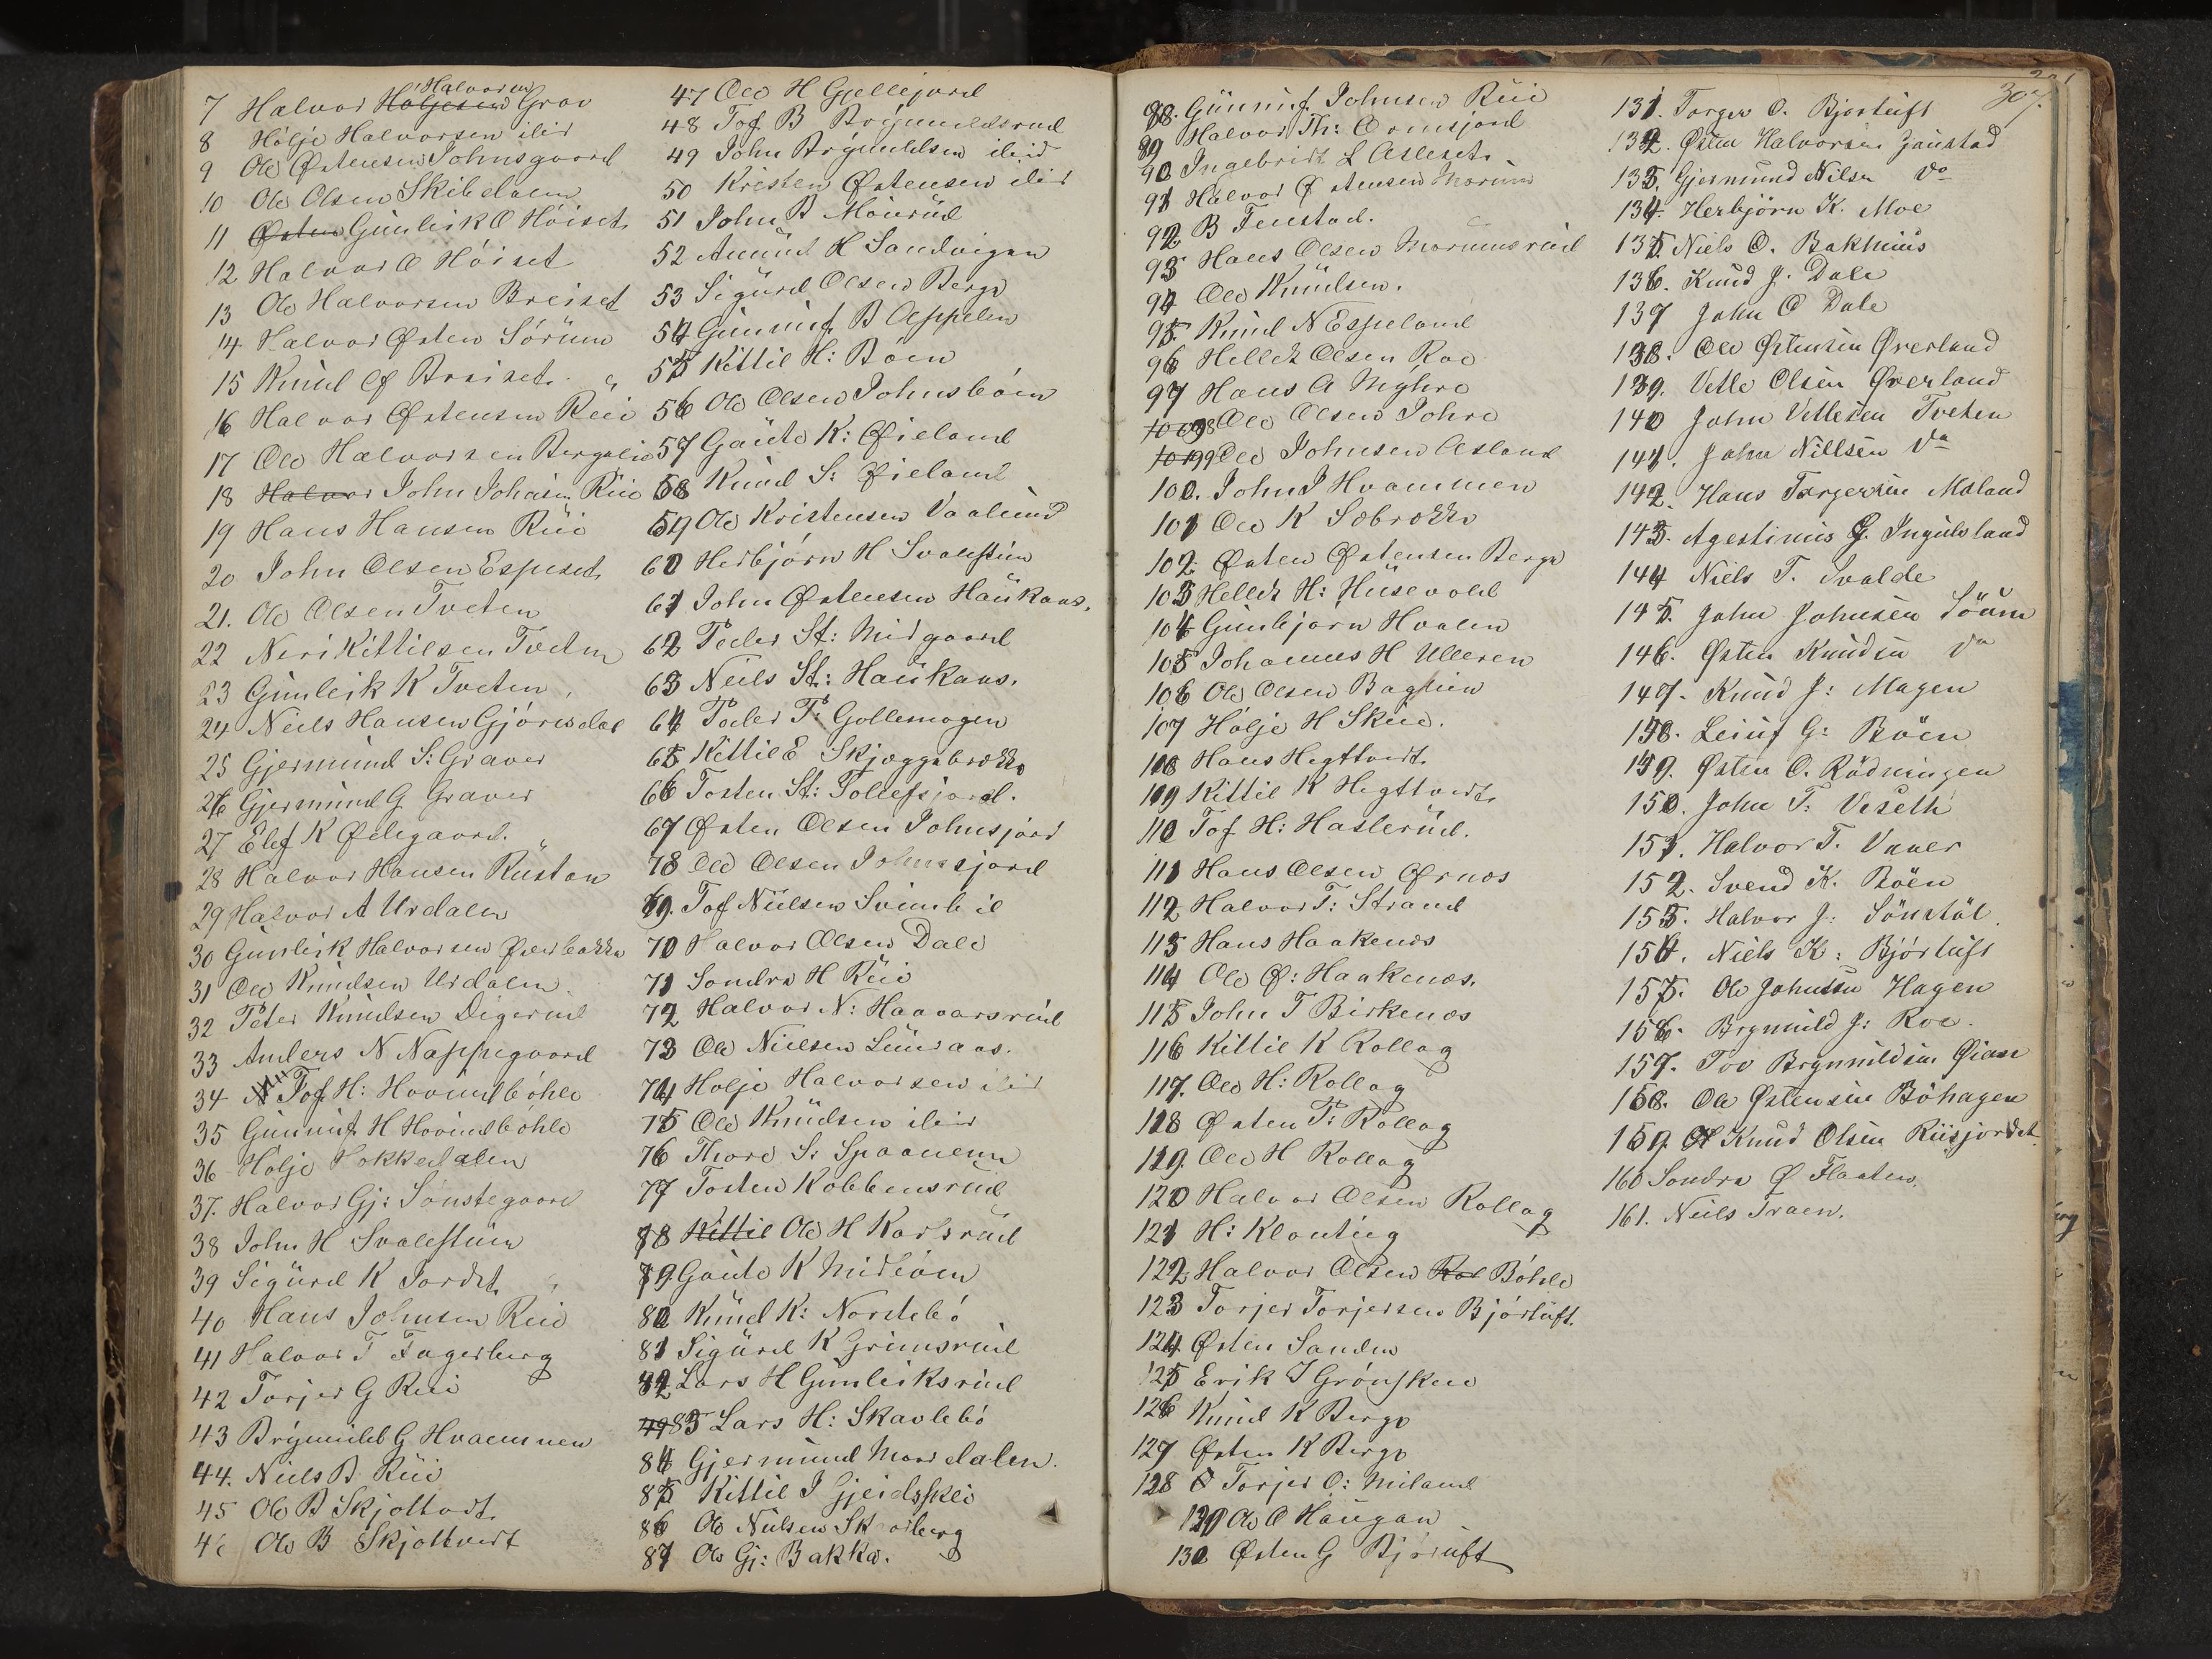 7 Halvor Holjesen Halvorsen Grav
8 Hölje Halvorsen ibid
9 Ole Østensen Johnsgaard
10 Ole Olsen Skibsdalen
11 Østen Gunleik O Höiset
12 Halvor O Höiset
13 Ole Halvorsen Breiset
14 Halvor Østen Sörum
15 Knud O Breiset
16 Halvor Østensen Rüe
17 Ole Halvorsen Bergslie
18 Halvor John Johnsen Rüe
19 Hans Hansen Rüe
20 John Olsen Espeset
21. Ole Olsen Tveten
22 Neri Kittilsen Tveten
23 Gunleik K Tveten
24 Neils Hansen Gjörisdal
25 Gjermund S: Graver
26 Gjermund G Graver
27 Elef K Ødegaard.
28 Halvor Hansen Rustan
29 Halvor A Urdalen
30 Gunleik Halvorsen Øverbakka
31 Ole Knudsen Urdalen.
32 Peter Knudsen Digerud
33 Anders N Nappegaard
34 Tof H: Hovindböhle
35 Gunnuf H Hovindböhle
36 Holje Hokkedalen
37. Halvor Gj: Sönstegaard
38 John H Svalestuen
39 Sigurd K Jordet
40 Hans Johnsen Rüe
41 Halvor T Fagerberg
42 Torjer G Rüe
43 Brynuld G Hvammen
44. Niels B Rüe
45 Ole B Skjoltvedt.
46 Ole B Skjoltvedt
47 Ole H Gjellejord
48 Tof B Brynuldsrud
49 John Brynuldsen ibid
50 Kristen Østensen ibid
51 John B Mourud
52 Amund H Sandvigen
53 Sigurd Olsen Berge
54 Gunnuf B Oppelien
55 Kittil H: Böen
56 Ole Olsen Johnsböen
57 Gaute K: Øieland
58 Knud S: Øieland
59 Ole Kristensen Vaalund
60 Herbjörn H Svalestuen
61 John Østensen Haukaas.
62 Peder St: Midgaard
63 Neils St: Haukaas.
64 Peder P: Gollemogen
65 Kittil E Skjæggebrække
66 Tosten St: Tollefsjord.
67 Østen Olsen Johnsjord
78 Ole Olsen Johnssjord
69. Tof Nielsen Svimbil
70 Halvor Olsen Dale
71 Sondre H Rüe
72 Halvor N: Haavarsrud
73 Ole Nielsen Lindaas.
74 Holje Halvorsen ibid
75 Ole Knudsen ibid
76 Thore S: Spaanem
77 Tosten Kobbensrud
78 Kittil Ole H Karlsrud
79 Gaute K Midböen
80 Knud K: Nordebö
81 Sigurd K Grimsrud
82 Lars H Gunleiksrud
49 83 Lars H: Skavlebö
84 Gjermund Mardalen.
85 Kittil J Gjeidsskle
86 Ole Nielsen Skarberg
87 Ole Gj: Bakka.
307.
88. Gunnuf Johnsen Rüe
89 Halvor Th: Ormsjord
90 Ingebrigt L Asleset
91 Halvor Østensen Morum
92 B Fenstad.
93 Hans Olsen Morumsrud
94 Ole Knudsen.
95. Knud N Espeland
96 Hellek Olsen Roe
97 Hans A Myhre
98 Ole Olsen Johre
99 Ole Johnsen Asland
100. John J Hvammen
101 Ole K Sæbrække
102. Østen Østensen Berge
103 Hellek H: Husevold
104 Gunbjörn Hvalen
105 Johannes H Ulleren
106 Ole Olsen Baglien
107 Hölje H Skue.
108 Hans Hegttvedt
109 Kittil K Hegttvedt
110 Tof H: Haslerud.
111 Hans Olsen Ørnæs
112 Halvor T: Strand
113 Hans Haakenæs
114 Ole Ø: Haakenæs.
115 John T Birkenæs
116 Kittil K Rollag
117. Ole H: Rollag
118 Østen P: Rollag
119. Ole H Rollag
120 Halvor Olsen Rollag
121 H: Klonteig
122 Halvor Olsen Rol Böhle
123 Torjer Torjersen Björtuft.
124. Østen Sanden
125 Erik J Grönskei
126 Knud K Berge
127 Østen K Berge
128 O Torjer O: Miland
129 Ole O Haugan
130 Østen G Björtuft
131. Torger O. Bjortuft
132. Østen Halvorsen Jonstad
133. Gjermund Nilsen Do
134. Herbjörn K. Moe
135. Niels O. Bakhuus
136. Knud J. Dale
137 John O Dale
138. Ole Østensen Øverland
139. Vetle Olsen Øverland
140 John Vetlesen Tveten
141. John Nillsen Do
142. Hans Torgersen Moland
143. Agestinus G. Ingulsland
144 Niels T. Ivalde
145. John Johnsen Söum
146. Østen Knudsen Do
147. Knud J: Magen
148. Leiuf G: Böen
149. Østen O. Rödningen
150. John T: Veseth
151. Halvor T. Vaaer
152. Svend K. Böen
153. Halvor J: Sönstöl
154. Niels K: Björtuft
155. Ole Johnsen Hagen
156. Brynuild J: Roe.
157. Tov Brynuildsen Øiane
158. Ole Østensen Böhagen
159. Knud Olsen Riisjordet
160 Sondre Ø Flaaten.
161. Neils Traen.